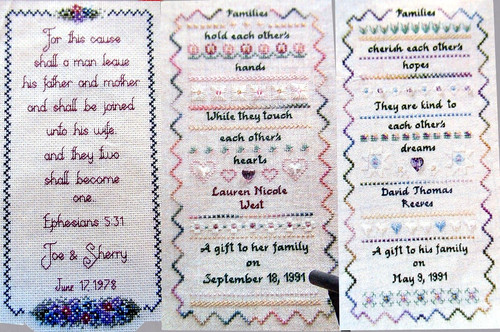 For this cause
shall a man leave
his father and mother
and shall be joined
unto his wife.
and they two
shall become
one.
Ephesians 5:31
Joe & Sherry
June 17, 1978
Families
hold each other's
hands
While they touch
each other's
hearts
Lauren Nicole
West
A gift to her family
on
September 18, 1991
Families
cherish each other's
hopes
They are kind to
each other's
dreams
David Thomas
Reeves
A gift to his family
on
May 9, 1991